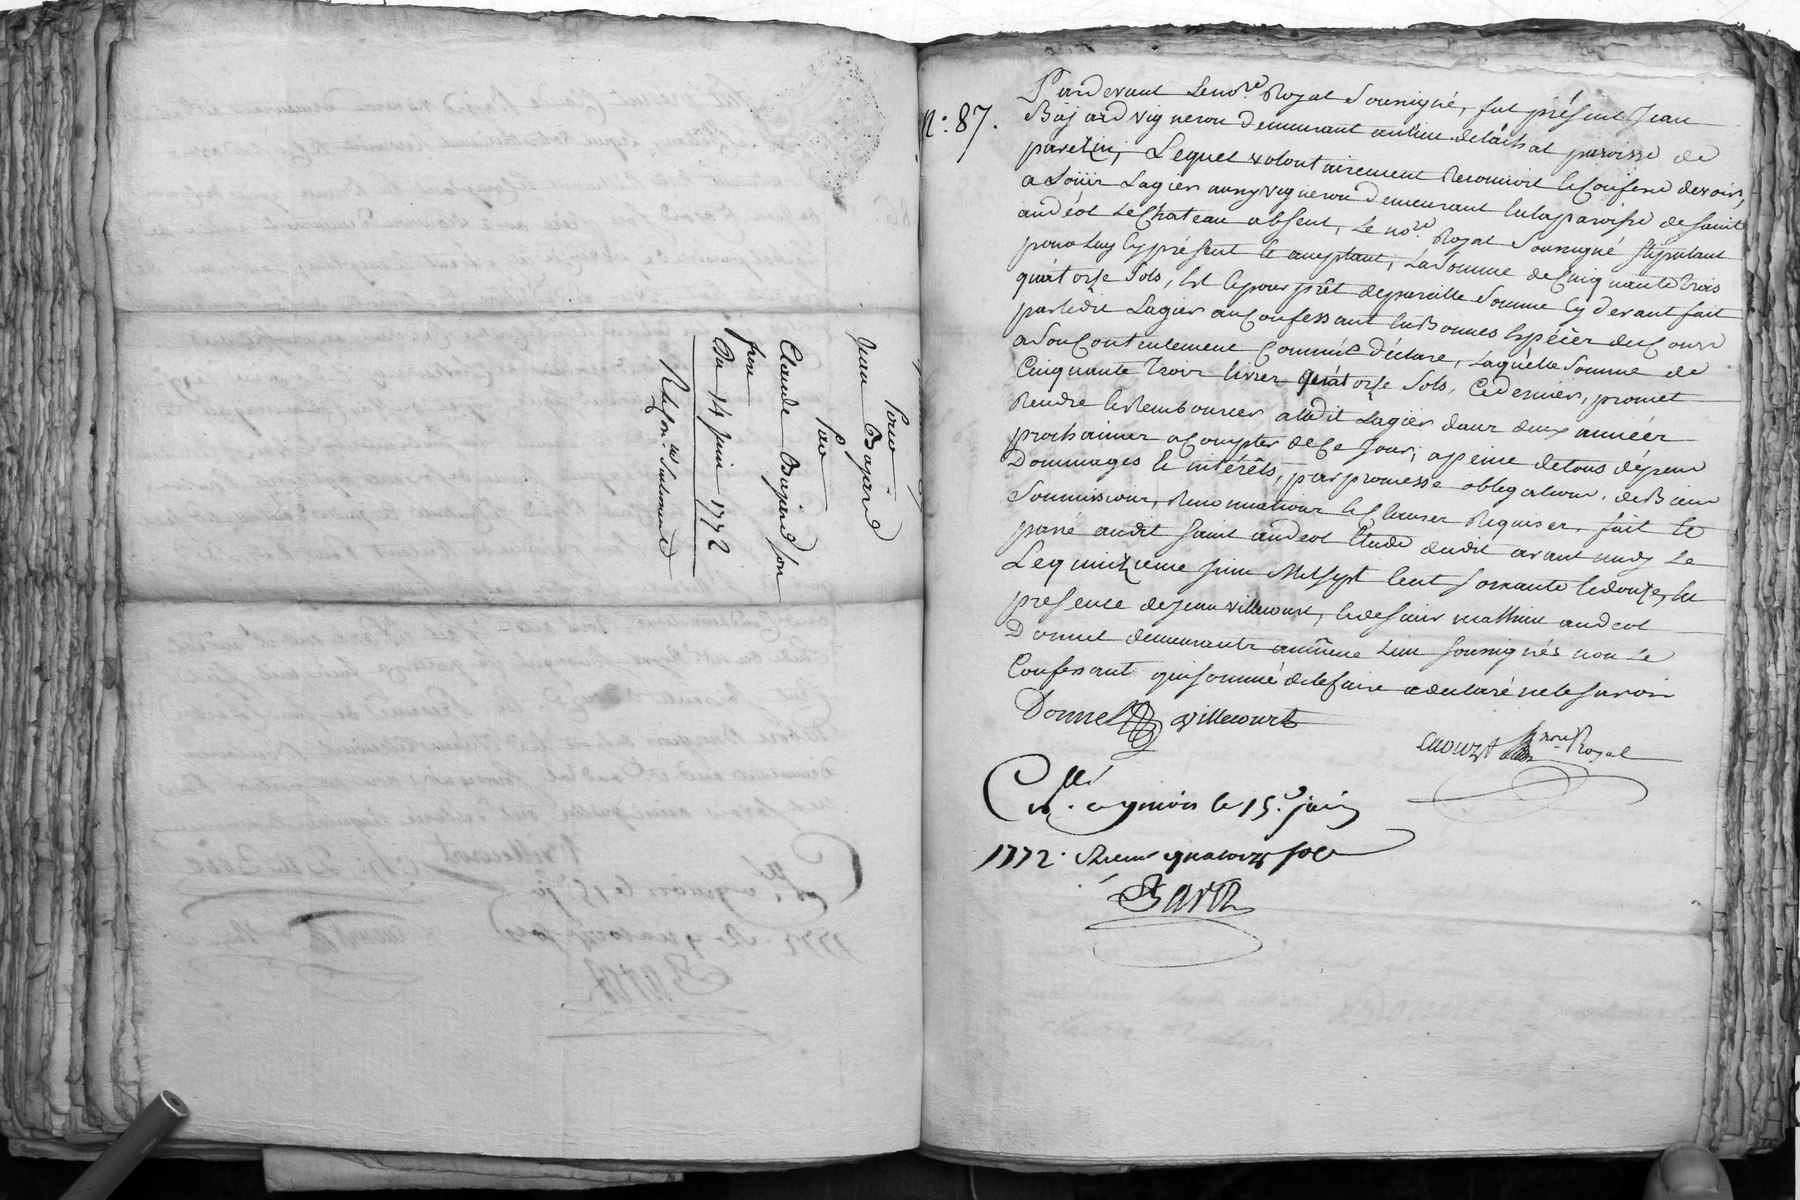 Pour
Jean Bajard
Par
Claude Bajard son
frere
Du 14 Juin 1772
n.º 87.
Pardevant Le no.re Royal Soussigné, fut présent Jean
Bajard vigneron demeurant au lieu de lachal paroisse de
parezin, Lequel volontairement Reconnoit & Confesse devoir,
a Loüis Lagier aussy vigneron demeurant en la paroisse de saint
andéol Le Chateau absent, Le no.re Royal Soussigné stipulant
pour Luy Cy présent & aceptant, La Somme de Cinquante trois
quatorze Sols, Et Ce pour prêt de pareille Somme Cy devant fait
par ledit Lagier au Confessant en Bonnes Espéces de Cours
a Son Contentement Comm'il déclare, Laquelle Somme de
Cinquante Trois livres quatorze Sols, Ce dernier, promet
Rendre & Rembourser audit Lagier dans deux années
prochaines a Compter de Ce Jour, a peine de tous dépens
Dommages & intérêts, par promesse obligations, de Biens
Soumissions, Renonciations & Clauses Requises, fait &
passé audit saint andéol Etude dudit avant midy Le
Le quinzieme Juin Mil sept Cent soixante & douze, En
présence de Jean villecourt, & de sieur mathieu andéol
Donnet demeurants au même Lieu soussignés non Le
Confessant qui sommé de le faire a declaré ne le savoir
Donnet villecourt
no.re Royal
C.llé a givors le 15.e juin
1772. Receu quatorze sols